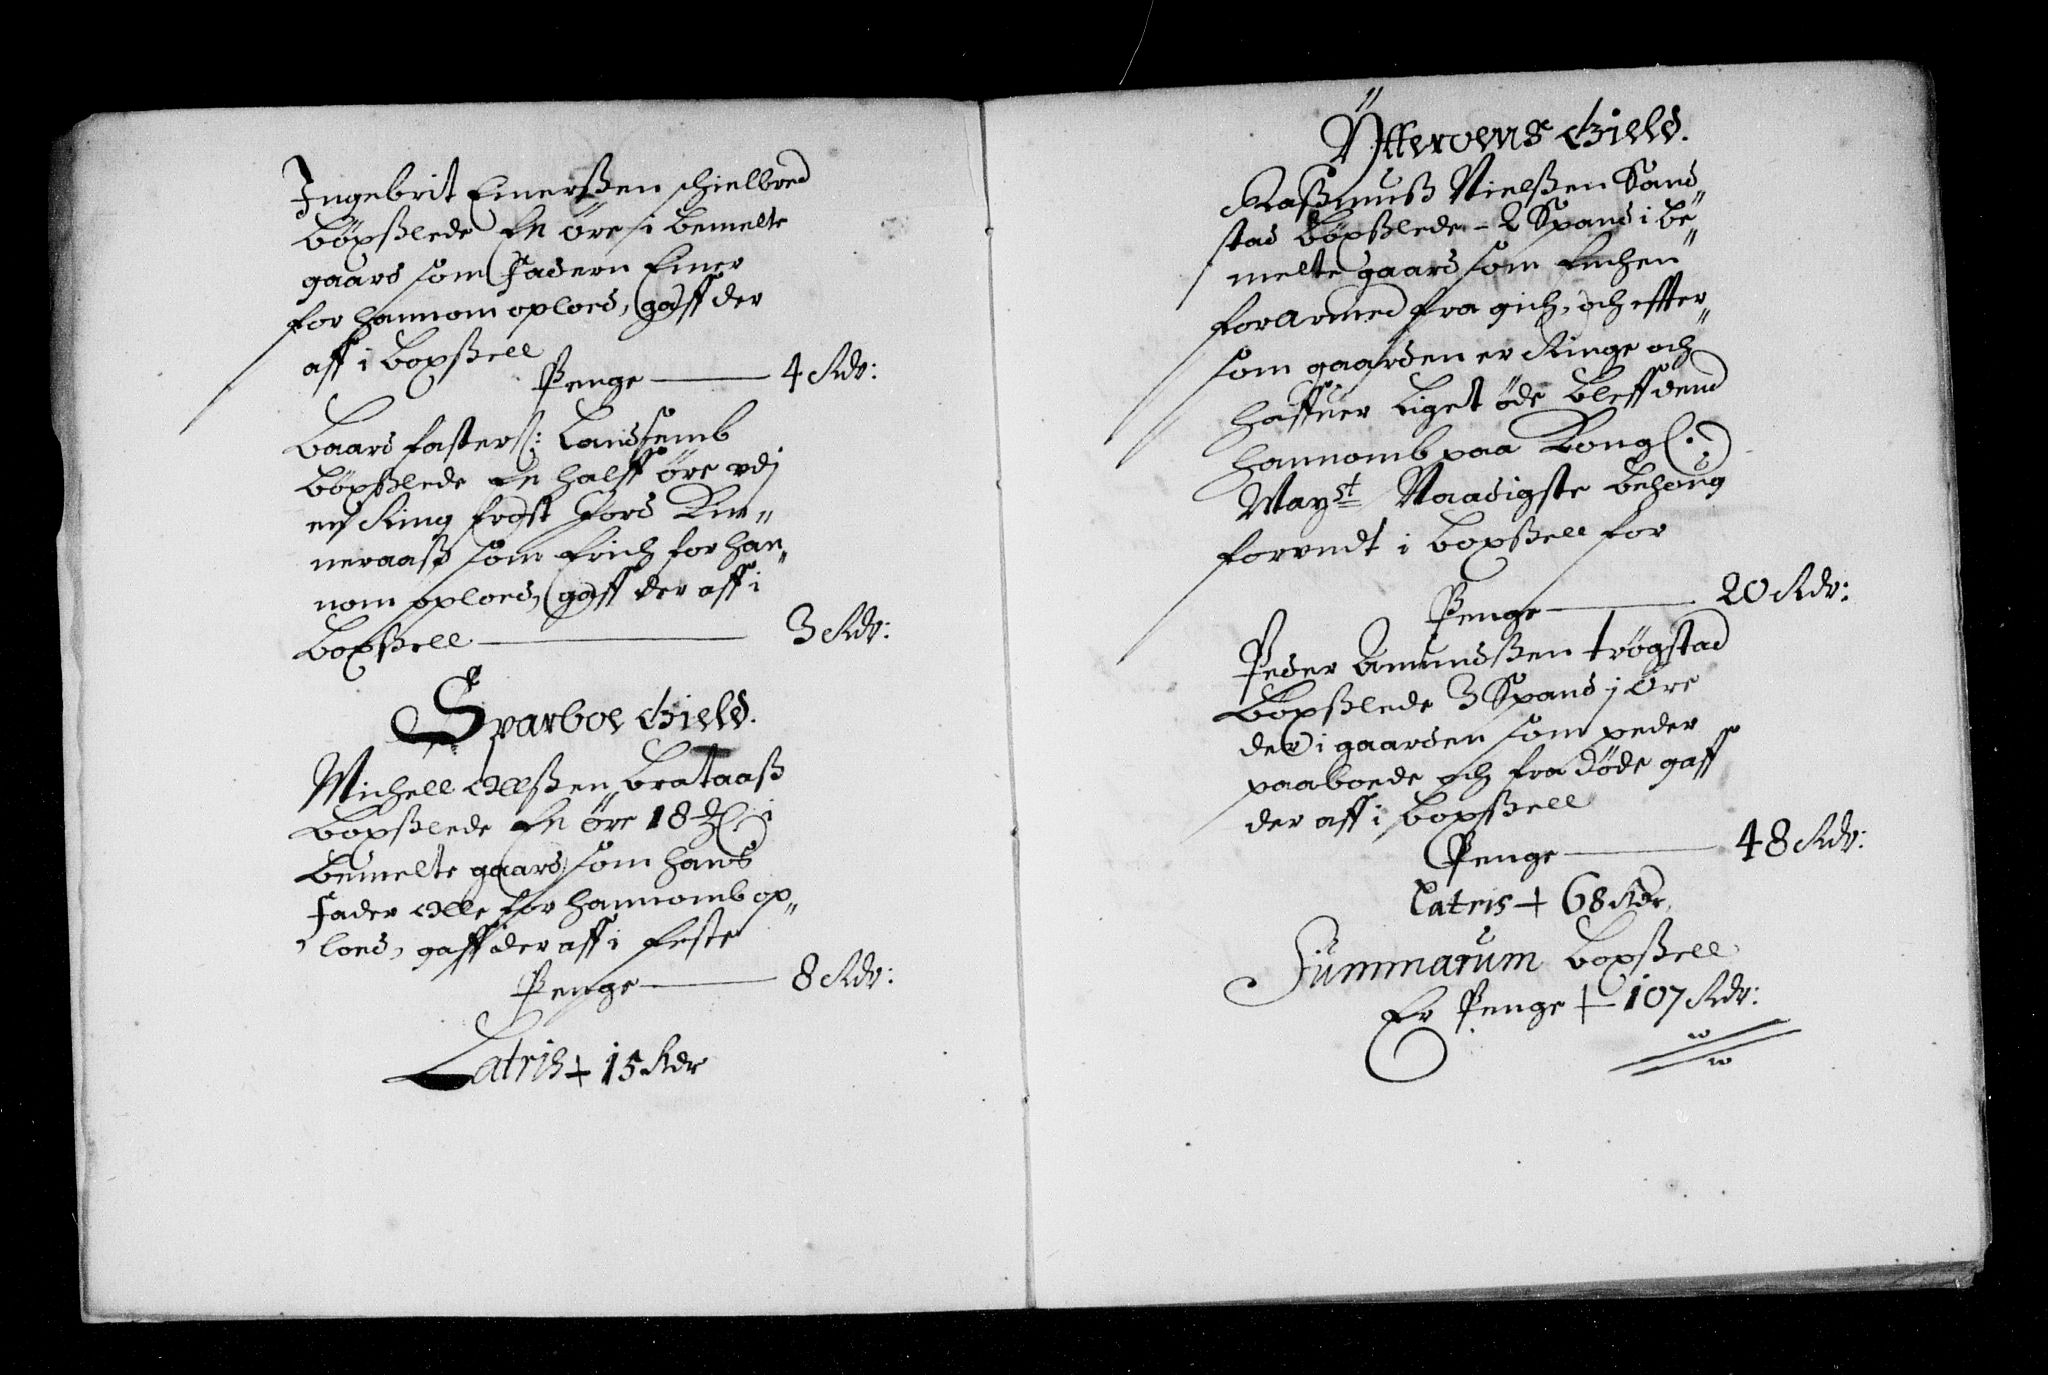 Ingebrit Einerßen schielbred
böxßlede En öre i bemelte
gaard som Faderen Einer
for hannom oplod, gaff der
aff i boxßell
Penge — 4 Rdr:
Baard fasterß: Landsemb
böxßlede En halff öre udj
en Ring
neraaß som Erich for han„
nom oplod, gaff der aff i
boxßell — 3 Rdr:
Sparboe Gield.
Michell Olleßen brataaß
boxßlede En öre 18 i
bemelte gaard som hans
Fader Olle for hannomb op„
lod, gaff der aff i feste
Penge — 8 Rdr:
Latris + 15 Rdr
Ÿtterøens Gield.
Raßmuß Nielßen Sand„
stad böxßlede - 2 Spand i be„
melte gaard som Enchen
forarmed fra gich, och effter„
som gaarden er Ringe och
haffuer Liget öde bleff dend
hannomb paa Kongl:
Mayst Naadigste behaug
forundt i boxßell for
Penge — 20 Rdr:
Peder Amundßen trögstad
boxßlede 3 Spand j öre
der i gaarden som peder
paaboede och fra döde gaff
der aff i boxßell
Penge — 48 Rdr:
Latris + 68 Rdr
Summarum boxßell
Er Penge + 107 Rdr: